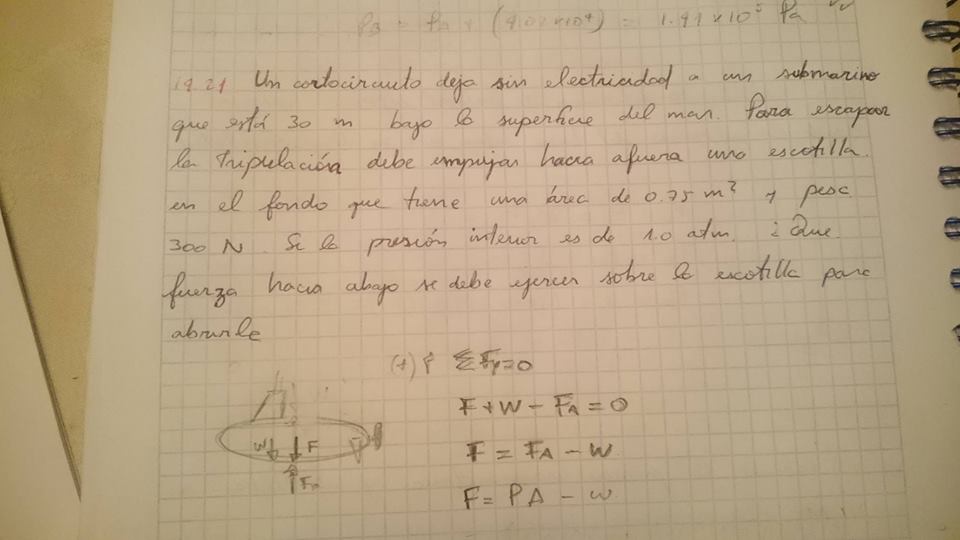 P3 = Pa + (9.02 x10⁴) = 1.91 x 10⁵ Pa
14.21 Un cortocircuito deja sin electricidad a un submarino
que está 30 m bajo la superficie del mar. Para escapar
la tripulación debe empujar hacia afuera una escotilla
en el fondo que tiene una área de 0.75 m² y pesa
300 N. Si la presión interior es de 1.0 atm. ¿Que
fuerza hacia abajo se debe ejercer sobre la escotilla para
abrirle
(+)↑ ΣFy=0
F+W-FA=0
F = FA - W
F = PA - W
W F
FA